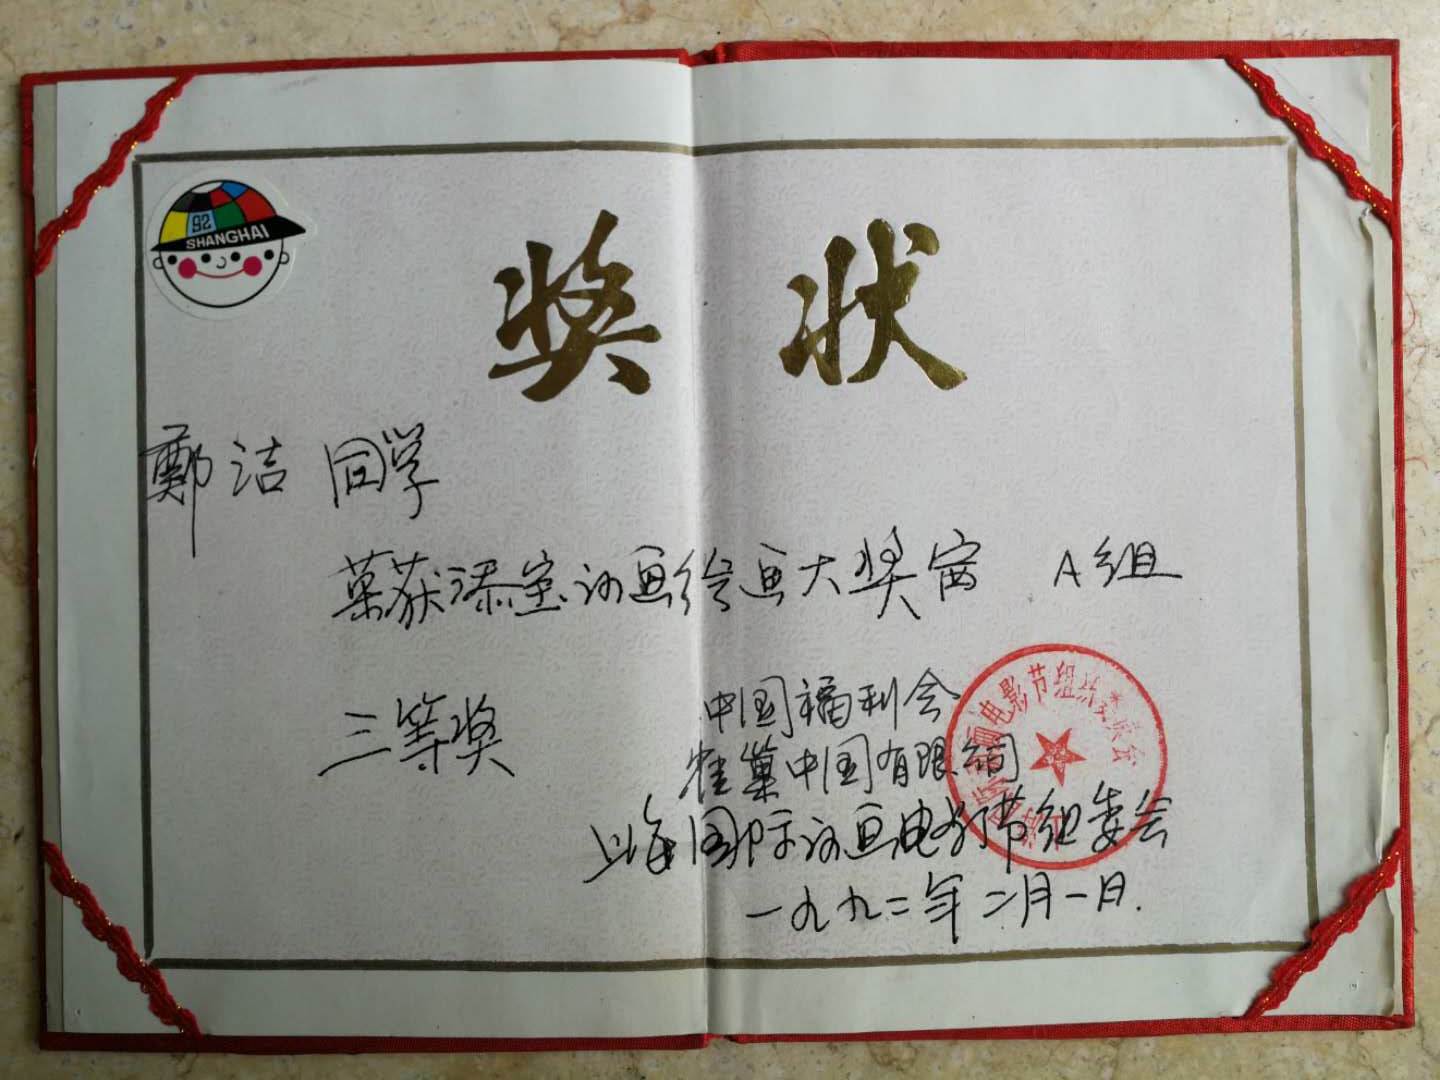 92
SHANGHAI
奖状
鄭洁 同学
荣获添宝动画绘画大奖赛 A组
三等奖
中国福利会
雀巢中国有限公司
上海国际动画电影节组委会
一九九二年二月一日.
上海国际动画电影节组织委员会